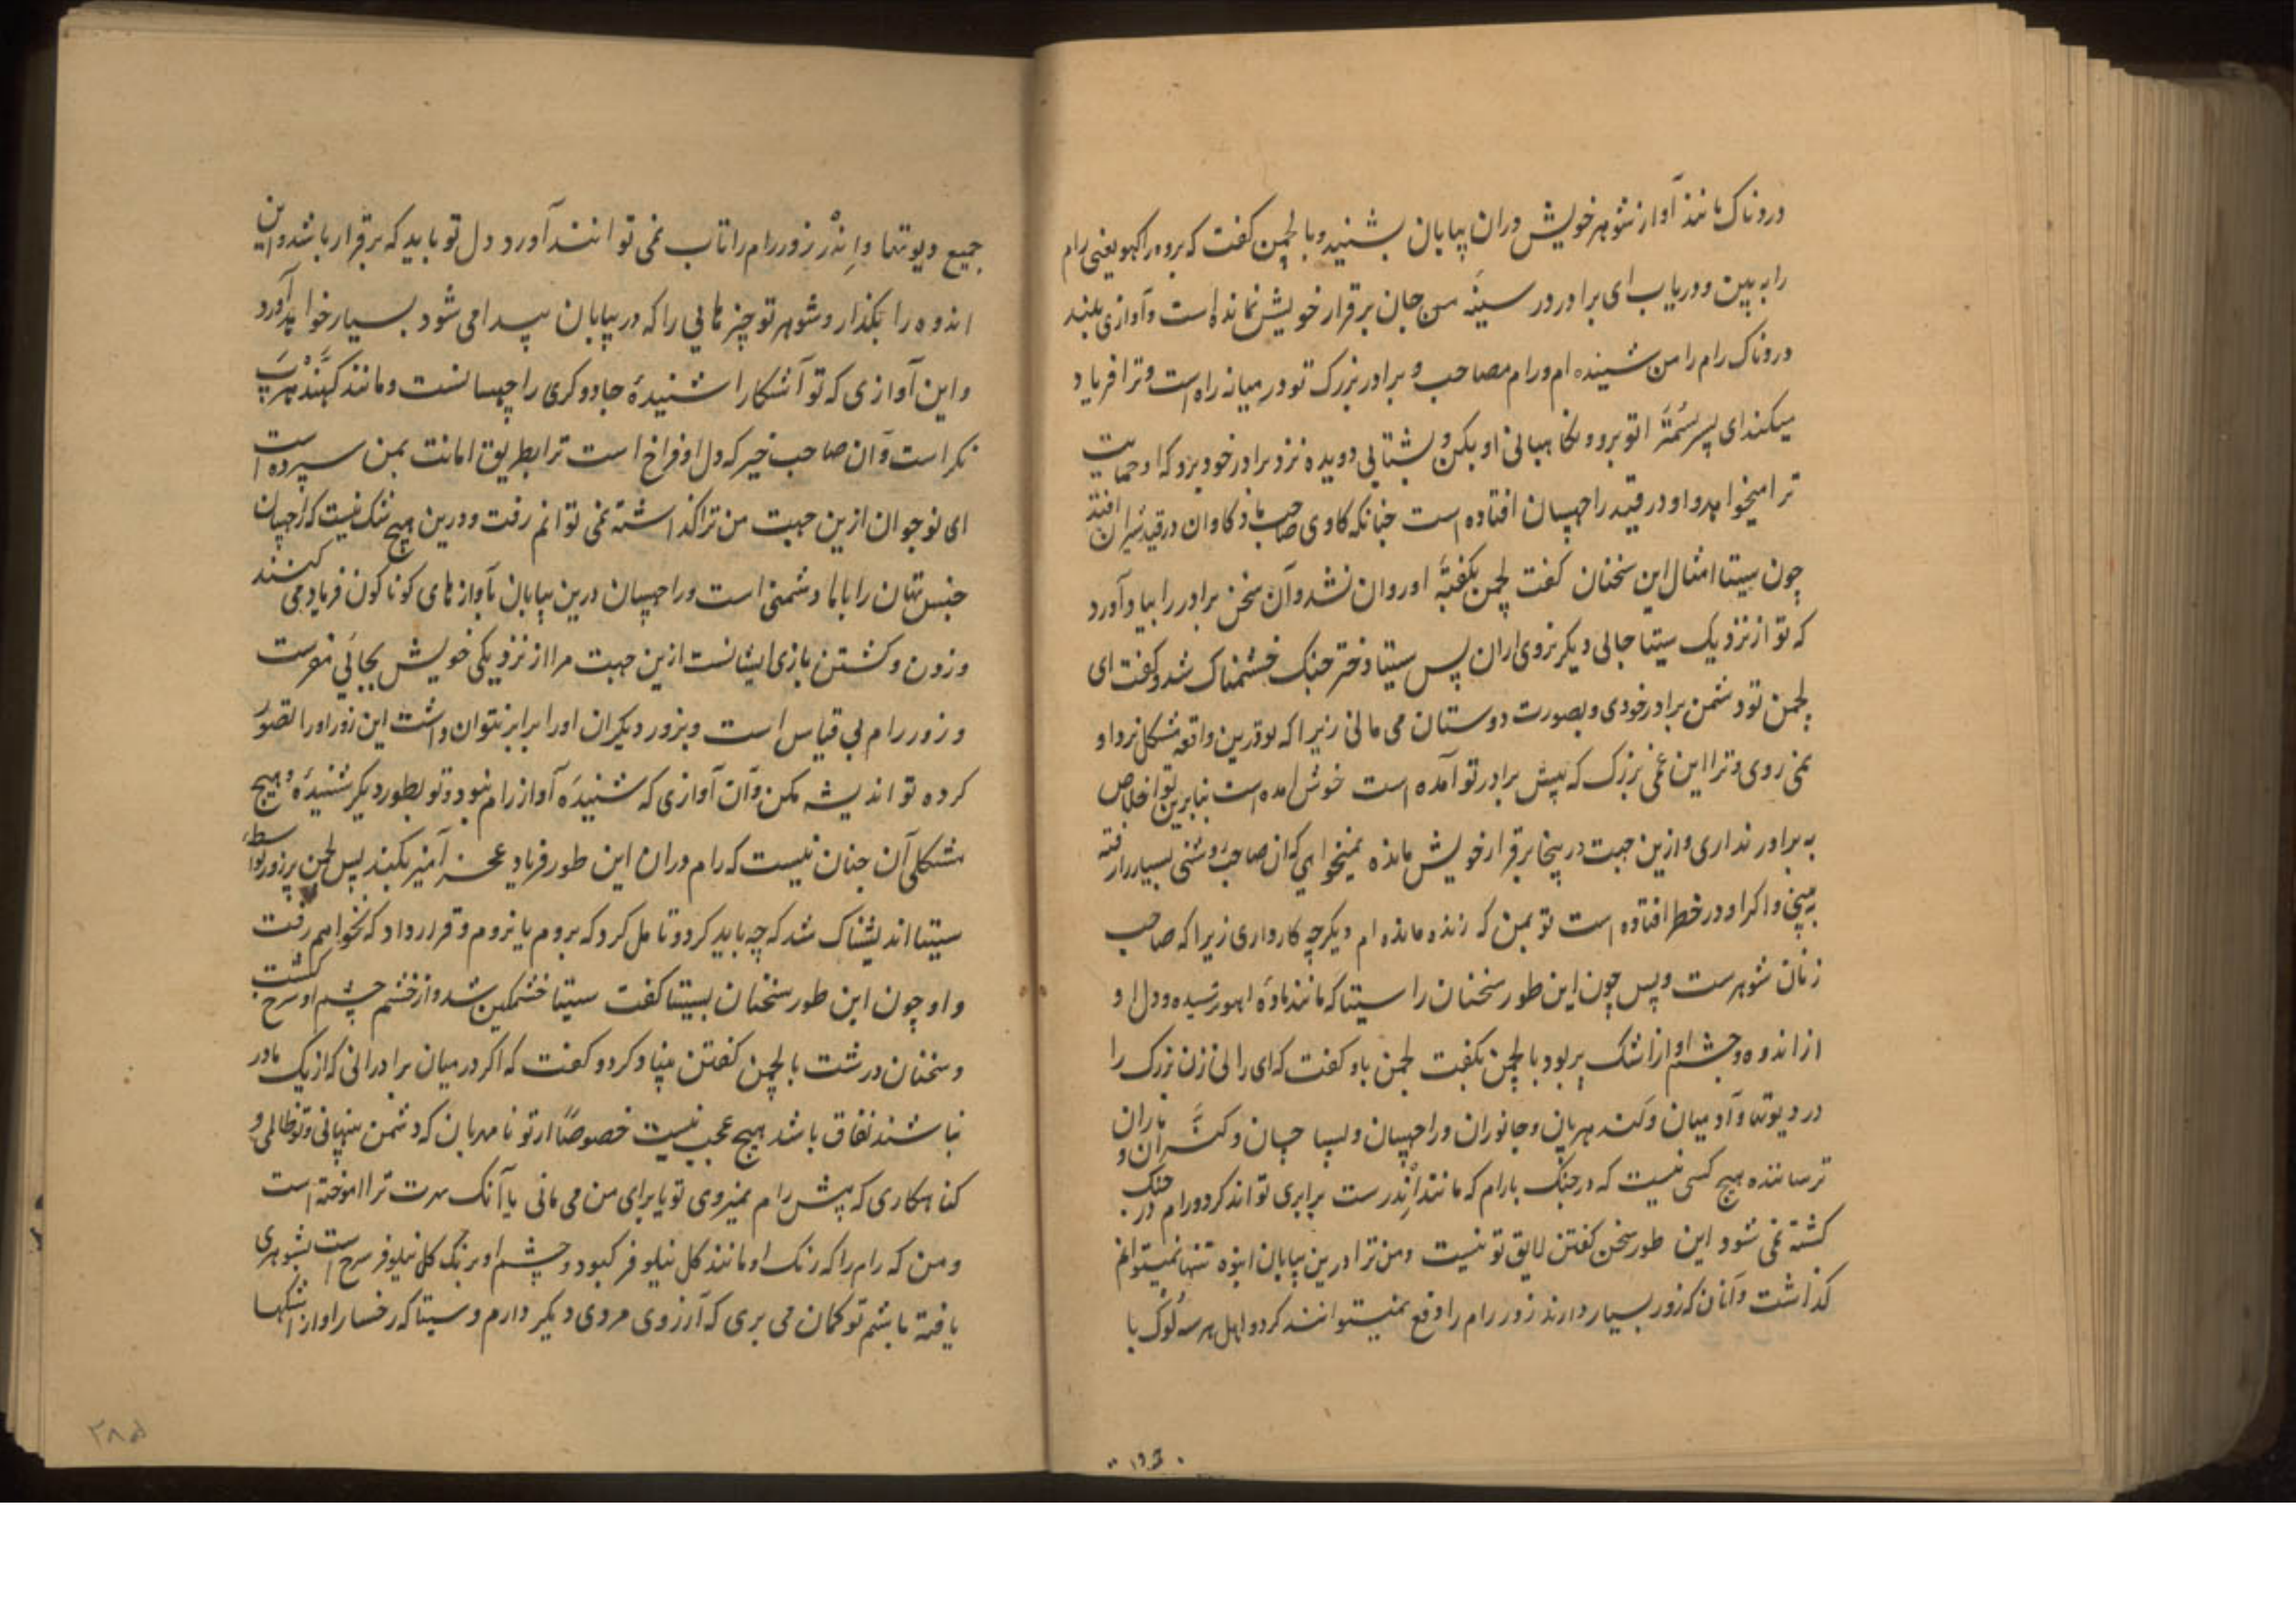 دردناک مانند آواز شوهر خویش دران بیابان بشنید و با لچمن کفت که برو راکهو یعنی رام
را به بین و دریاب ای برادر در سینه من جان برقرار خویش نمانده است و آوازی بلند
دردناک رام را من شنیده ام و رام مصاحب و برادر بزرک تو در میانه راه است و ترا فریاد
میکند ای پسر سُمتَرا تو برو و نکاهبانی او بکن و بشتابی دویده نزد برادر خود برو که او حمایت
ترا میخواهد و او در قید راچهسان افتاده است چنانکه کاوی صاحب ماده کاوان در قید شیران افتد
چون سیتا امثال این سخنان کفت لچمن بکفتهٔ او روان نشد و آن سخن برادر را بیاد آورد
که تو از نزدیک سیتا جائی دیکر نروی ازان پس سیتا دختر جنک خشمناک شد و کفت ای
لچمن تو دشمن برادر خودی و بصورت دوستان می مانی زیرا که تو درین واقعه مشکل نزد او
نمی روی و ترا این غمی بزرک که پیش برادر تو آمده است خوش آمده است بنابرین تو اخلاص
به برادر نداری و ازین جهت در ینجا برقرار خویش مانده نمیخواهی که آن صاحب روشنی بسیار را رفته
به بینی و اکر او در خطر افتاده است تو بمن که زنده مانده ام دیکر چه کار داری زیرا که صاحب
زنان شوهرست و پس چون این طور سخنان را سیتا که مانند مادهٔ آهو ترسیده و دل او
از اندوه و چشم او از اشک پر بود با لچمن بکفت لچمن باو کفت که ای رانی زن بزرک را
در دیوتها و آدمیان و کندهربان و جانوران و راچهسان و پساچان و کنّران و ماران
ترساننده هیچ کسی نیست که در جنک با رام که مانند اِندرست برابری تواند کرد و رام در جنک
کشته نمی شود این طور سخن کفتن لایق تو نیست و من ترا درین بیابان انبوه تنها نمیتوانم
کذاشت و آنان که زور بسیار دارند زور رام را دفع نمیتوانند کرد و اهل هر سه لُوک با
جمیع دیوتها و اِندر زور رام را تاب نمی توانند آورد دل تو باید که برقرار باشد و این
اندوه را بکذار و شوهر تو چیزهایی را که در بیابان پیدا می شود بسیار خواهد آورد
و این آوازی که تو آشکارا شنیدهٔ جادوکری راچهسانست و مانند کندهرپ
نکر است و آن صاحب خیر که دل او فراخ است ترا بطریق امانت بمن سپرده است
ای نوجوان ازین جهت من ترا کذاشته نمی توانم رفت و درین هیچ شک نیست که راچهسان
جنس تهان را باما دشمنی است و راچهسان درین بیابان بآوازهای کوناکون فریاد می کنند
و زدن و کشتن بازی ایشانست ازین جهت مرا از نزدیکی خویش بجائی مفرست
و زور رام بی قیاس است و بزور دیکران او را برابر نتوان داشت این زور او را تصور
کرده تو اندیشه مکن و آن آوازی که شنیدهٔ آواز رام نبود و تو بطور دیکر شنیدهٔ و هیچ
مشکلی آن چنان نیست که رام دران این طور فریاد عجز آمیز بکند پس لچمن پرزور بواسطهٔ
سیتا اندیشناک شد که چه باید کرد و تامل کرد که بروم یا نروم و قرار داد که نخواهم رفت
و او چون این طور سخنان بسیتا کفت سیتا خشمکین شد و از خشم چشم او سرخ کشت
و سخنان درشت با لچمن کفتن بنیاد کرد و کفت که اکر در میان برادرانی که از یک مادر
نباشند نفاق باشد هیچ عجب نیست خصوصًا از تو نامهربان که دشمن پنهانی و تو ظالمی و
کناهکاری که پیش رام نمیروی تو یا برای من می مانی یا آنک بهرت ترا آموخته است
و من که رام را که رنک او مانند کل نیلوفر کبود و چشم او برنک کل نیلوفر سرخ است بشوهری
یافته باشم تو کمان می بری که آرزوی مردی دیکر دارم و سیتا که رخسار او از اشکها
۲۸۵